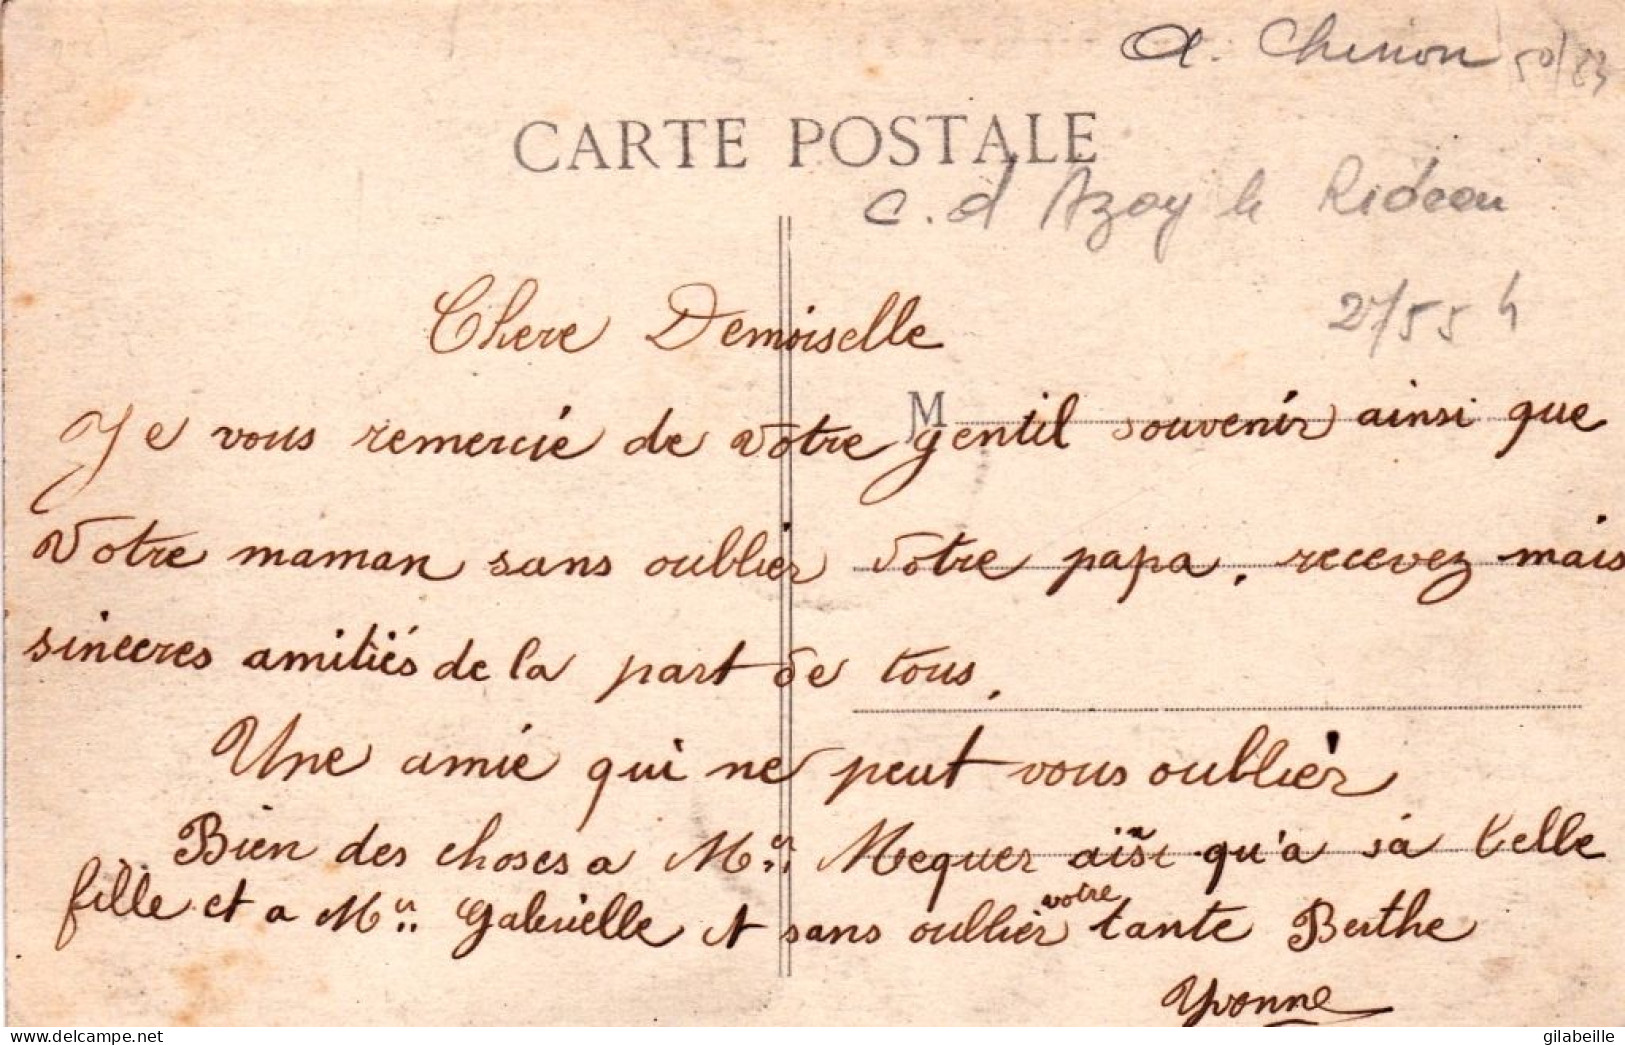 a. Chinon 50/23
CARTE POSTALE
c. d Azay le Rideau
27/55 h
Chere Demoiselle
M
Je vous remercie de votre gentil souvenir ainsi que
votre maman sans oublier votre papa, recevez mais
sinceres amitiés de la part de tous.
Une amie qui ne peut vous oublier
Bien des choses a Mr Mequer aisi qu'a sa belle
fille et a Mll Gabrielle et sans oublier votre tante Berthe
Yvonne
delcampe.net
gilabeille